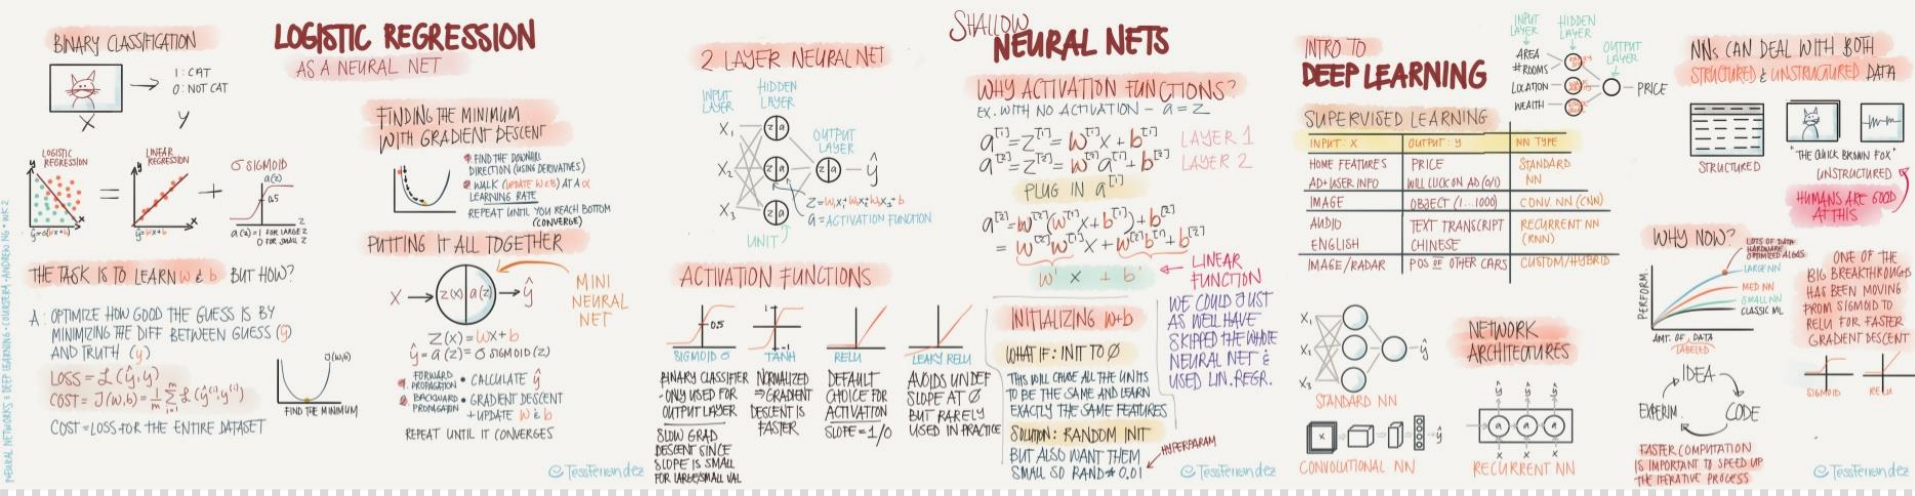 BINARY CLASSIFICATION
1: CAT
0: NOT CAT
X
y
LOGISTIC REGRESSION
AS A NEURAL NET
LOGISTIC
REGRESSION
=
LINEAR
REGRESSION
+
σ SIGMOID
a(z)
0.5
z
a(z)=1 FOR LARGE Z
0 FOR SMALL Z
THE TASK IS TO LEARN w & b BUT HOW?
A: OPTIMIZE HOW GOOD THE GUESS IS BY
MINIMIZING THE DIFF BETWEEN GUESS (ŷ)
AND TRUTH (y)
LOSS = ℒ(ŷ,y)
COST = J(w,b) = 1/m Σ ℒ(ŷ⁽ⁱ⁾,y⁽ⁱ⁾)
COST = LOSS FOR THE ENTIRE DATASET
J(w,b)
FIND THE MINIMUM
FINDING THE MINIMUM
WITH GRADIENT DESCENT
FIND THE DOWNHILL
DIRECTION (USING DERIVATIVES)
WALK (UPDATE w & b) AT A α
LEARNING RATE
REPEAT UNTIL YOU REACH BOTTOM
(CONVERGE)
PUTTING IT ALL TOGETHER
X → z(x) a(z) → ŷ
MINI
NEURAL
NET
Z(x) = wx+b
ŷ = a(z) = σ SIGMOID(z)
FORWARD
PROPAGATION • CALCULATE ŷ
BACKWARD
PROPAGATION • GRADIENT DESCENT
+ UPDATE w & b
REPEAT UNTIL IT CONVERGES
NEURAL NETWORKS & DEEP LEARNING • COURSERA • ANDREW NG • WK 2
©TessFerrandez
2 LAYER NEURAL NET
INPUT
LAYER
HIDDEN
LAYER
OUTPUT
LAYER
X₁
X₂
X₃
z a
ŷ
a = ACTIVATION FUNCTION
UNIT
ACTIVATION FUNCTIONS
0.5
SIGMOID σ
BINARY CLASSIFIER
- ONLY USED FOR
OUTPUT LAYER
SLOW GRAD
DESCENT SINCE
SLOPE IS SMALL
FOR LARGE/SMALL VAL
1
-1
TANH
NORMALIZED
⇒ GRADIENT
DESCENT IS
FASTER
RELU
DEFAULT
CHOICE FOR
ACTIVATION
SLOPE = 1/0
LEAKY RELU
AVOIDS UNDEF
SLOPE AT 0
BUT RARELY
USED IN PRACTICE
SHALLOW
NEURAL NETS
WHY ACTIVATION FUNCTIONS?
EX. WITH NO ACTIVATION - a = z
a[1] = z[1] = w[1]x + b[1] LAYER 1
a[2] = z[2] = w[2]a[1] + b[2] LAYER 2
PLUG IN a[1]
a[2] = w[2](w[1]x + b[1]) + b[2]
= w[2]w[1]x + w[2]b[1] + b[2]
w' x + b'
LINEAR
FUNCTION
WE COULD JUST
AS WELL HAVE
SKIPPED THE WHOLE
NEURAL NET &
USED LIN. REGR.
INITIALIZING w+b
WHAT IF: INIT TO 0
THIS WILL CAUSE ALL THE UNITS
TO BE THE SAME AND LEARN
EXACTLY THE SAME FEATURES
SOLUTION: RANDOM INIT
BUT ALSO WANT THEM
SMALL SO RAND * 0.01
HYPERPARAM
©TessFerrandez
INTRO TO
DEEP LEARNING
INPUT
LAYER
HIDDEN
LAYER
OUTPUT
LAYER
AREA
#ROOMS
LOCATION
WEALTH
PRICE
SUPERVISED LEARNING
INPUT: X OUTPUT: y NN TYPE
HOME FEATURES PRICE STANDARD
AD+USER INFO WILL CLICK ON AD (0/1) NN
IMAGE OBJECT (1...1000) CONV. NN (CNN)
AUDIO TEXT TRANSCRIPT RECURRENT NN
ENGLISH CHINESE (RNN)
IMAGE/RADAR POS OF OTHER CARS CUSTOM/HYBRID
X₁
X₂
X₃
ŷ
STANDARD NN
X
ŷ
CONVOLUTIONAL NN
NETWORK
ARCHITECTURES
ŷ ŷ ŷ
a a a
x x x
RECURRENT NN
NNs CAN DEAL WITH BOTH
STRUCTURED & UNSTRUCTURED DATA
STRUCTURED
"THE QUICK BROWN FOX"
UNSTRUCTURED
HUMANS ARE GOOD
AT THIS
WHY NOW?
LOTS OF DATA
HARDWARE
OPTIMIZED ALGOS
LARGE NN
MED NN
SMALL NN
CLASSIC ML
PERFORM.
AMT. OF DATA
LABELED
IDEA
CODE
EXPERIM.
FASTER COMPUTATION
IS IMPORTANT TO SPEED UP
THE ITERATIVE PROCESS
ONE OF THE
BIG BREAKTHROUGHS
HAS BEEN MOVING
FROM SIGMOID TO
RELU FOR FASTER
GRADIENT DESCENT
SIGMOID
RELU
©TessFerrandez